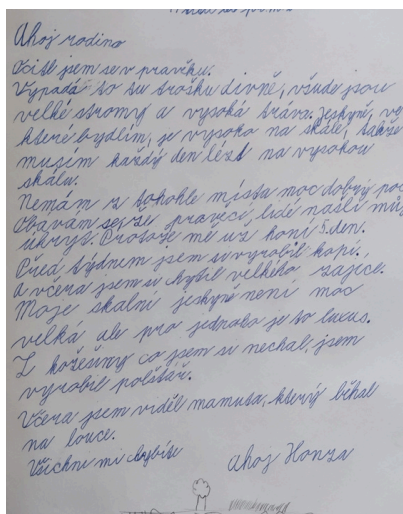 Ahoj rodino
Ocitl jsem se v pravěku.
Vypadá to tu trošku divně, všude jsou
velké stromy a vysoká tráva. Jeskyně, ve
které bydlím, je vysoko na skále, takže
musím každý den lézt na vysokou
skálu.
Nemám z tohohle místa moc dobrý poc
Obávám se, že pravěcí lidé našli můj
úkryt. Protože mě už honí 5. den.
Před týdnem jsem si vyrobil kopí.
A včera jsem si chytil velkého zajíce.
Moje skalní jeskyně není moc
velká ale pro jednoho je to luxus.
Z kožešiny co jsem si nechal, jsem
vyrobil polštář.
Včera jsem viděl mamuta, který běhal
na louce.
Všichni mi chybíte
Ahoj Honza